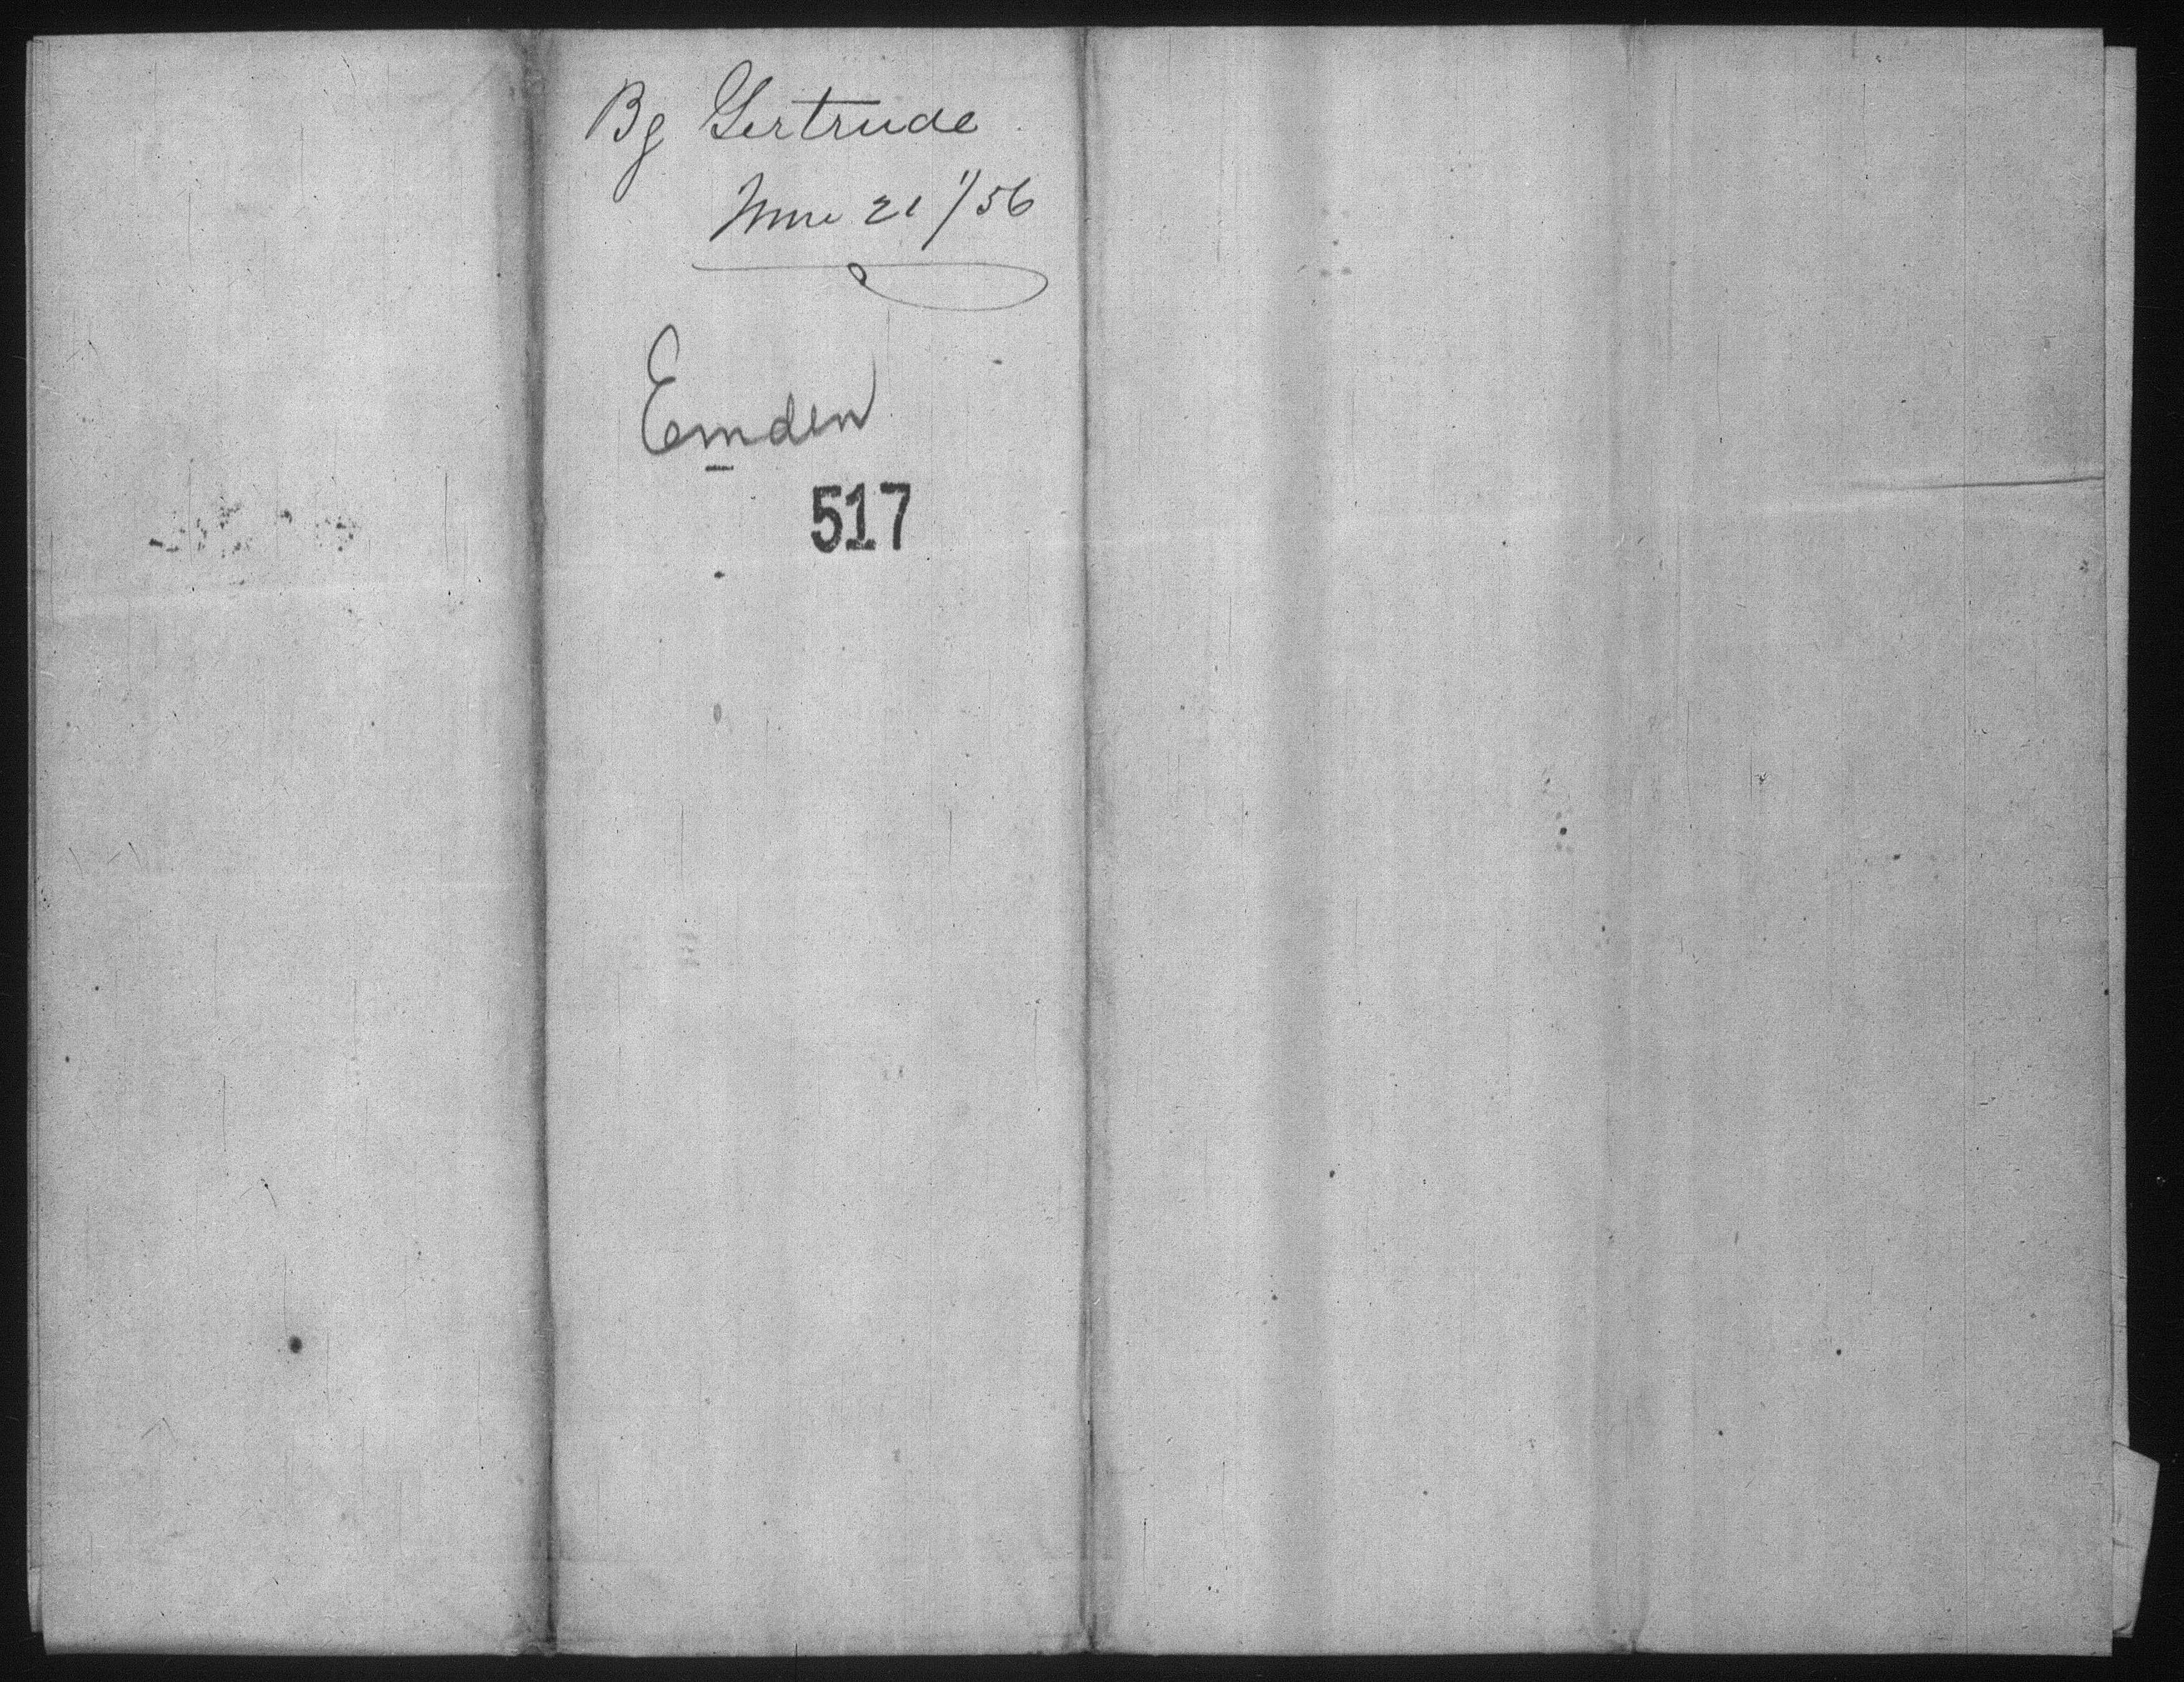 Bg Gertrude
June 21/56
Emden
517